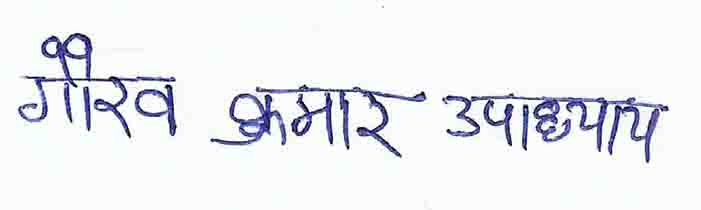 गौरव कुमार उपाध्याय